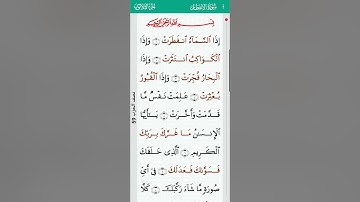 سُورَةُ الانفِطَارِ
الجزء الثلاثون
بِسْمِ اللَّهِ الرَّحْمَٰنِ الرَّحِيمِ
إِذَا ٱلسَّمَآءُ ٱنفَطَرَتْ ۝١ وَإِذَا
ٱلْكَوَاكِبُ ٱنتَثَرَتْ ۝٢ وَإِذَا
ٱلْبِحَارُ فُجِّرَتْ ۝٣ وَإِذَا ٱلْقُبُورُ
بُعْثِرَتْ ۝٤ عَلِمَتْ نَفْسٌ مَّا
قَدَّمَتْ وَأَخَّرَتْ ۝٥ يَـٰٓأَيُّهَا
ٱلْإِنسَـٰنُ مَا غَرَّكَ بِرَبِّكَ
ٱلْكَرِيمِ ۝٦ ٱلَّذِى خَلَقَكَ
فَسَوَّىٰكَ فَعَدَلَكَ ۝٧ فِىٓ أَىِّ
صُورَةٍ مَّا شَآءَ رَكَّبَكَ ۝٨ كَلَّا
نصف الحزب 59